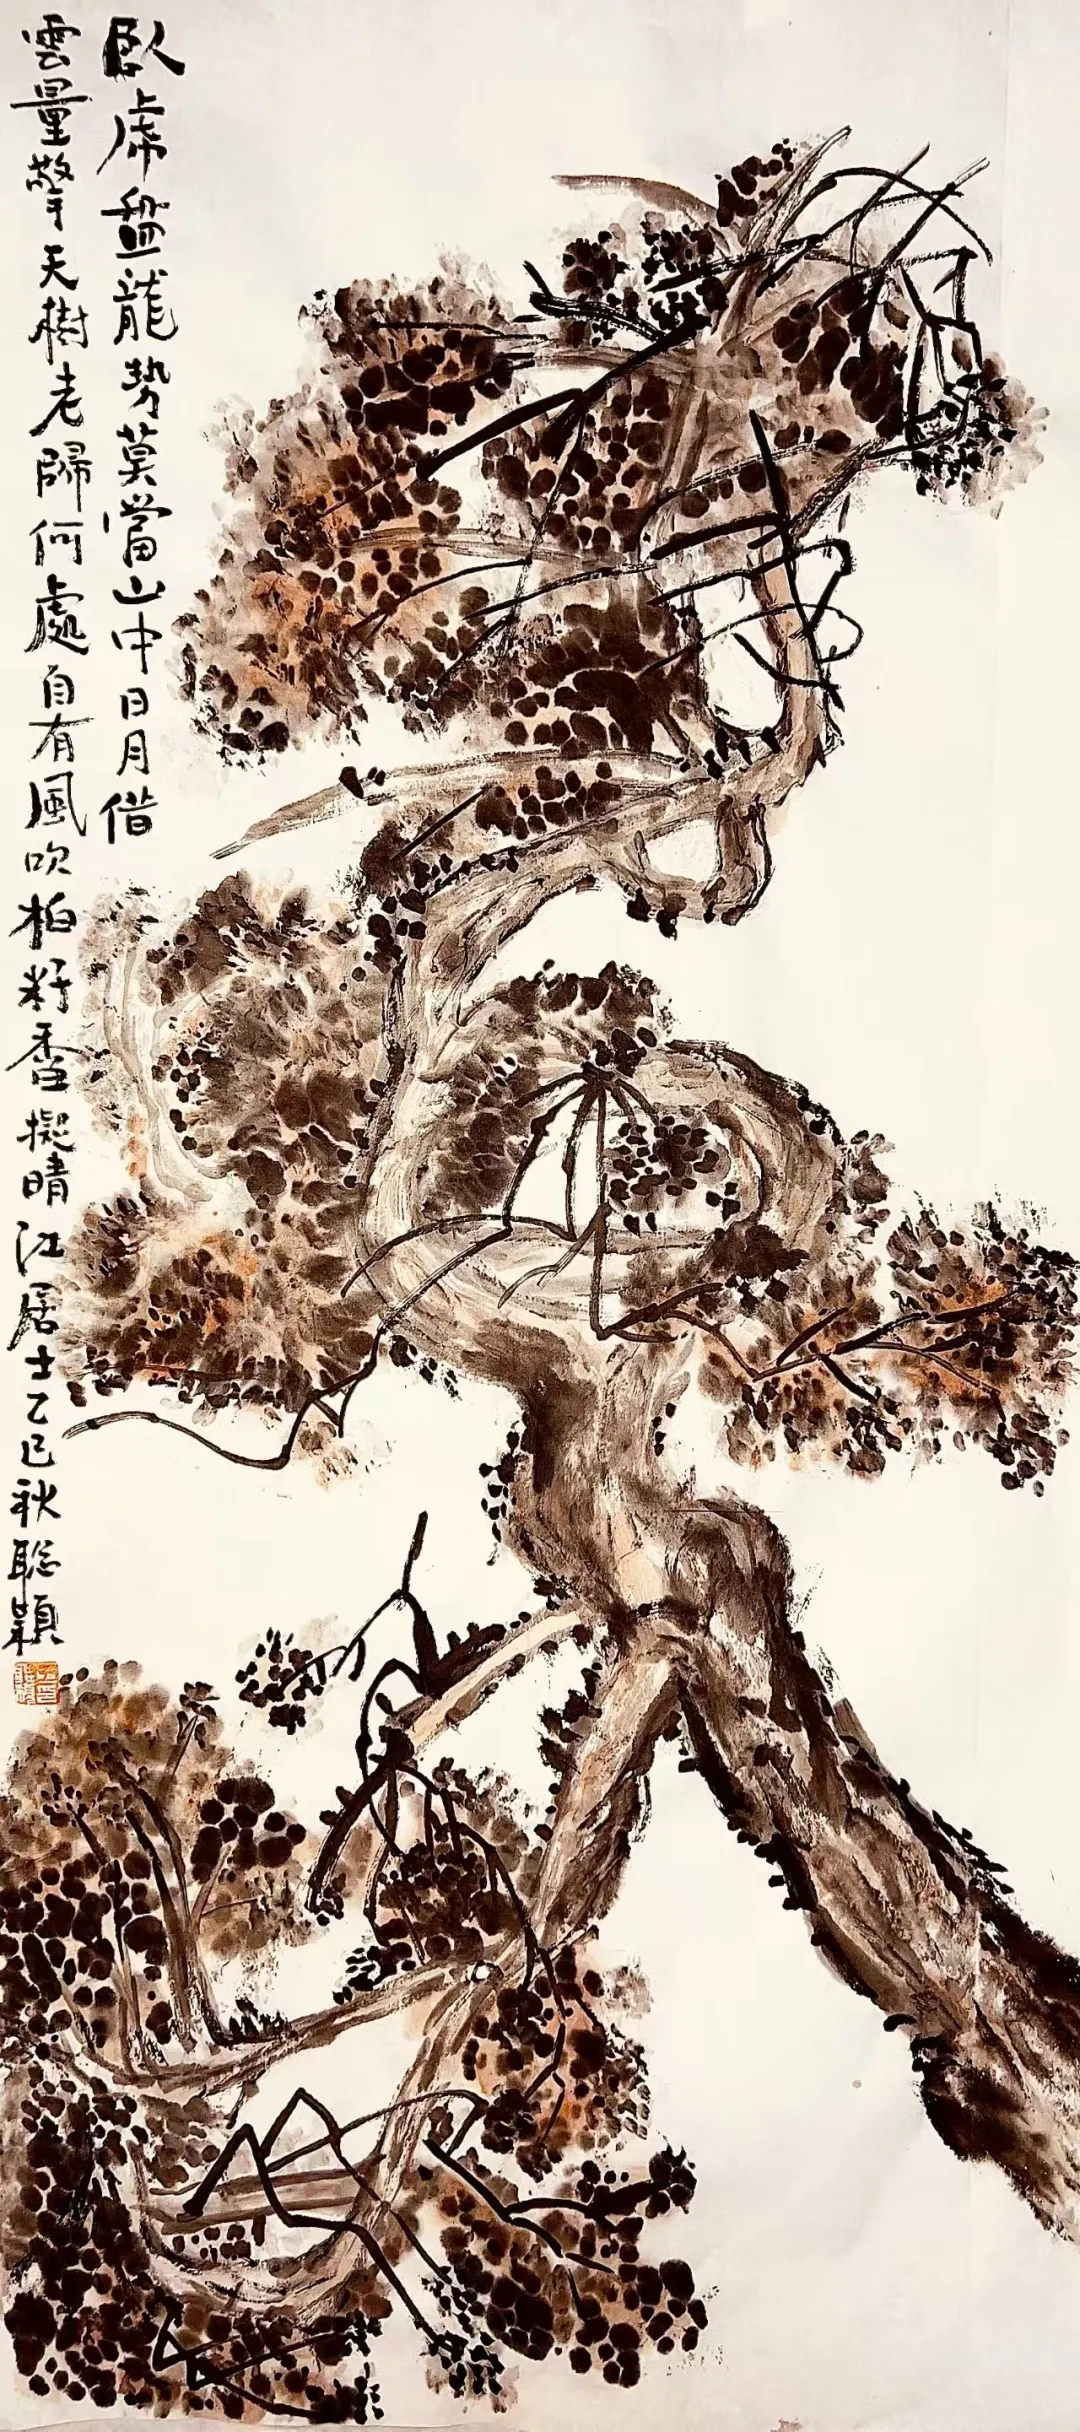 臥虎盘龍势莫當山中日月借
雲量擎天樹老歸何處自有風吹柏籽香擬晴江居士乙巳秋聪颖